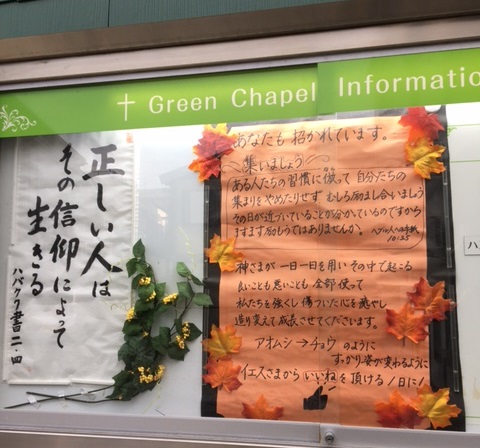 ✝ Green Chapel Informatio
正しい人は
その信仰によって
生きる
ハバクク書二・四
あなたも招かれています。
集いましょう
ある人たちの習慣に倣って 自分たちの
集まりをやめたりせず むしろ励まし合いましょう
その日が近づいていることが分かっているのですから
ますます励もうではありませんか。 ヘブル人への手紙
10:25
神さまが 一日一日を用い その中で起こる
良いことも悪いことも 全部 使って
私たちを強くし 傷ついた心を癒やし
造り変えて成長させてくださいます。
アオムシ→チョウ のように
すっかり姿が変わるように
イエスさまから いいね を頂ける1日に!
ハ